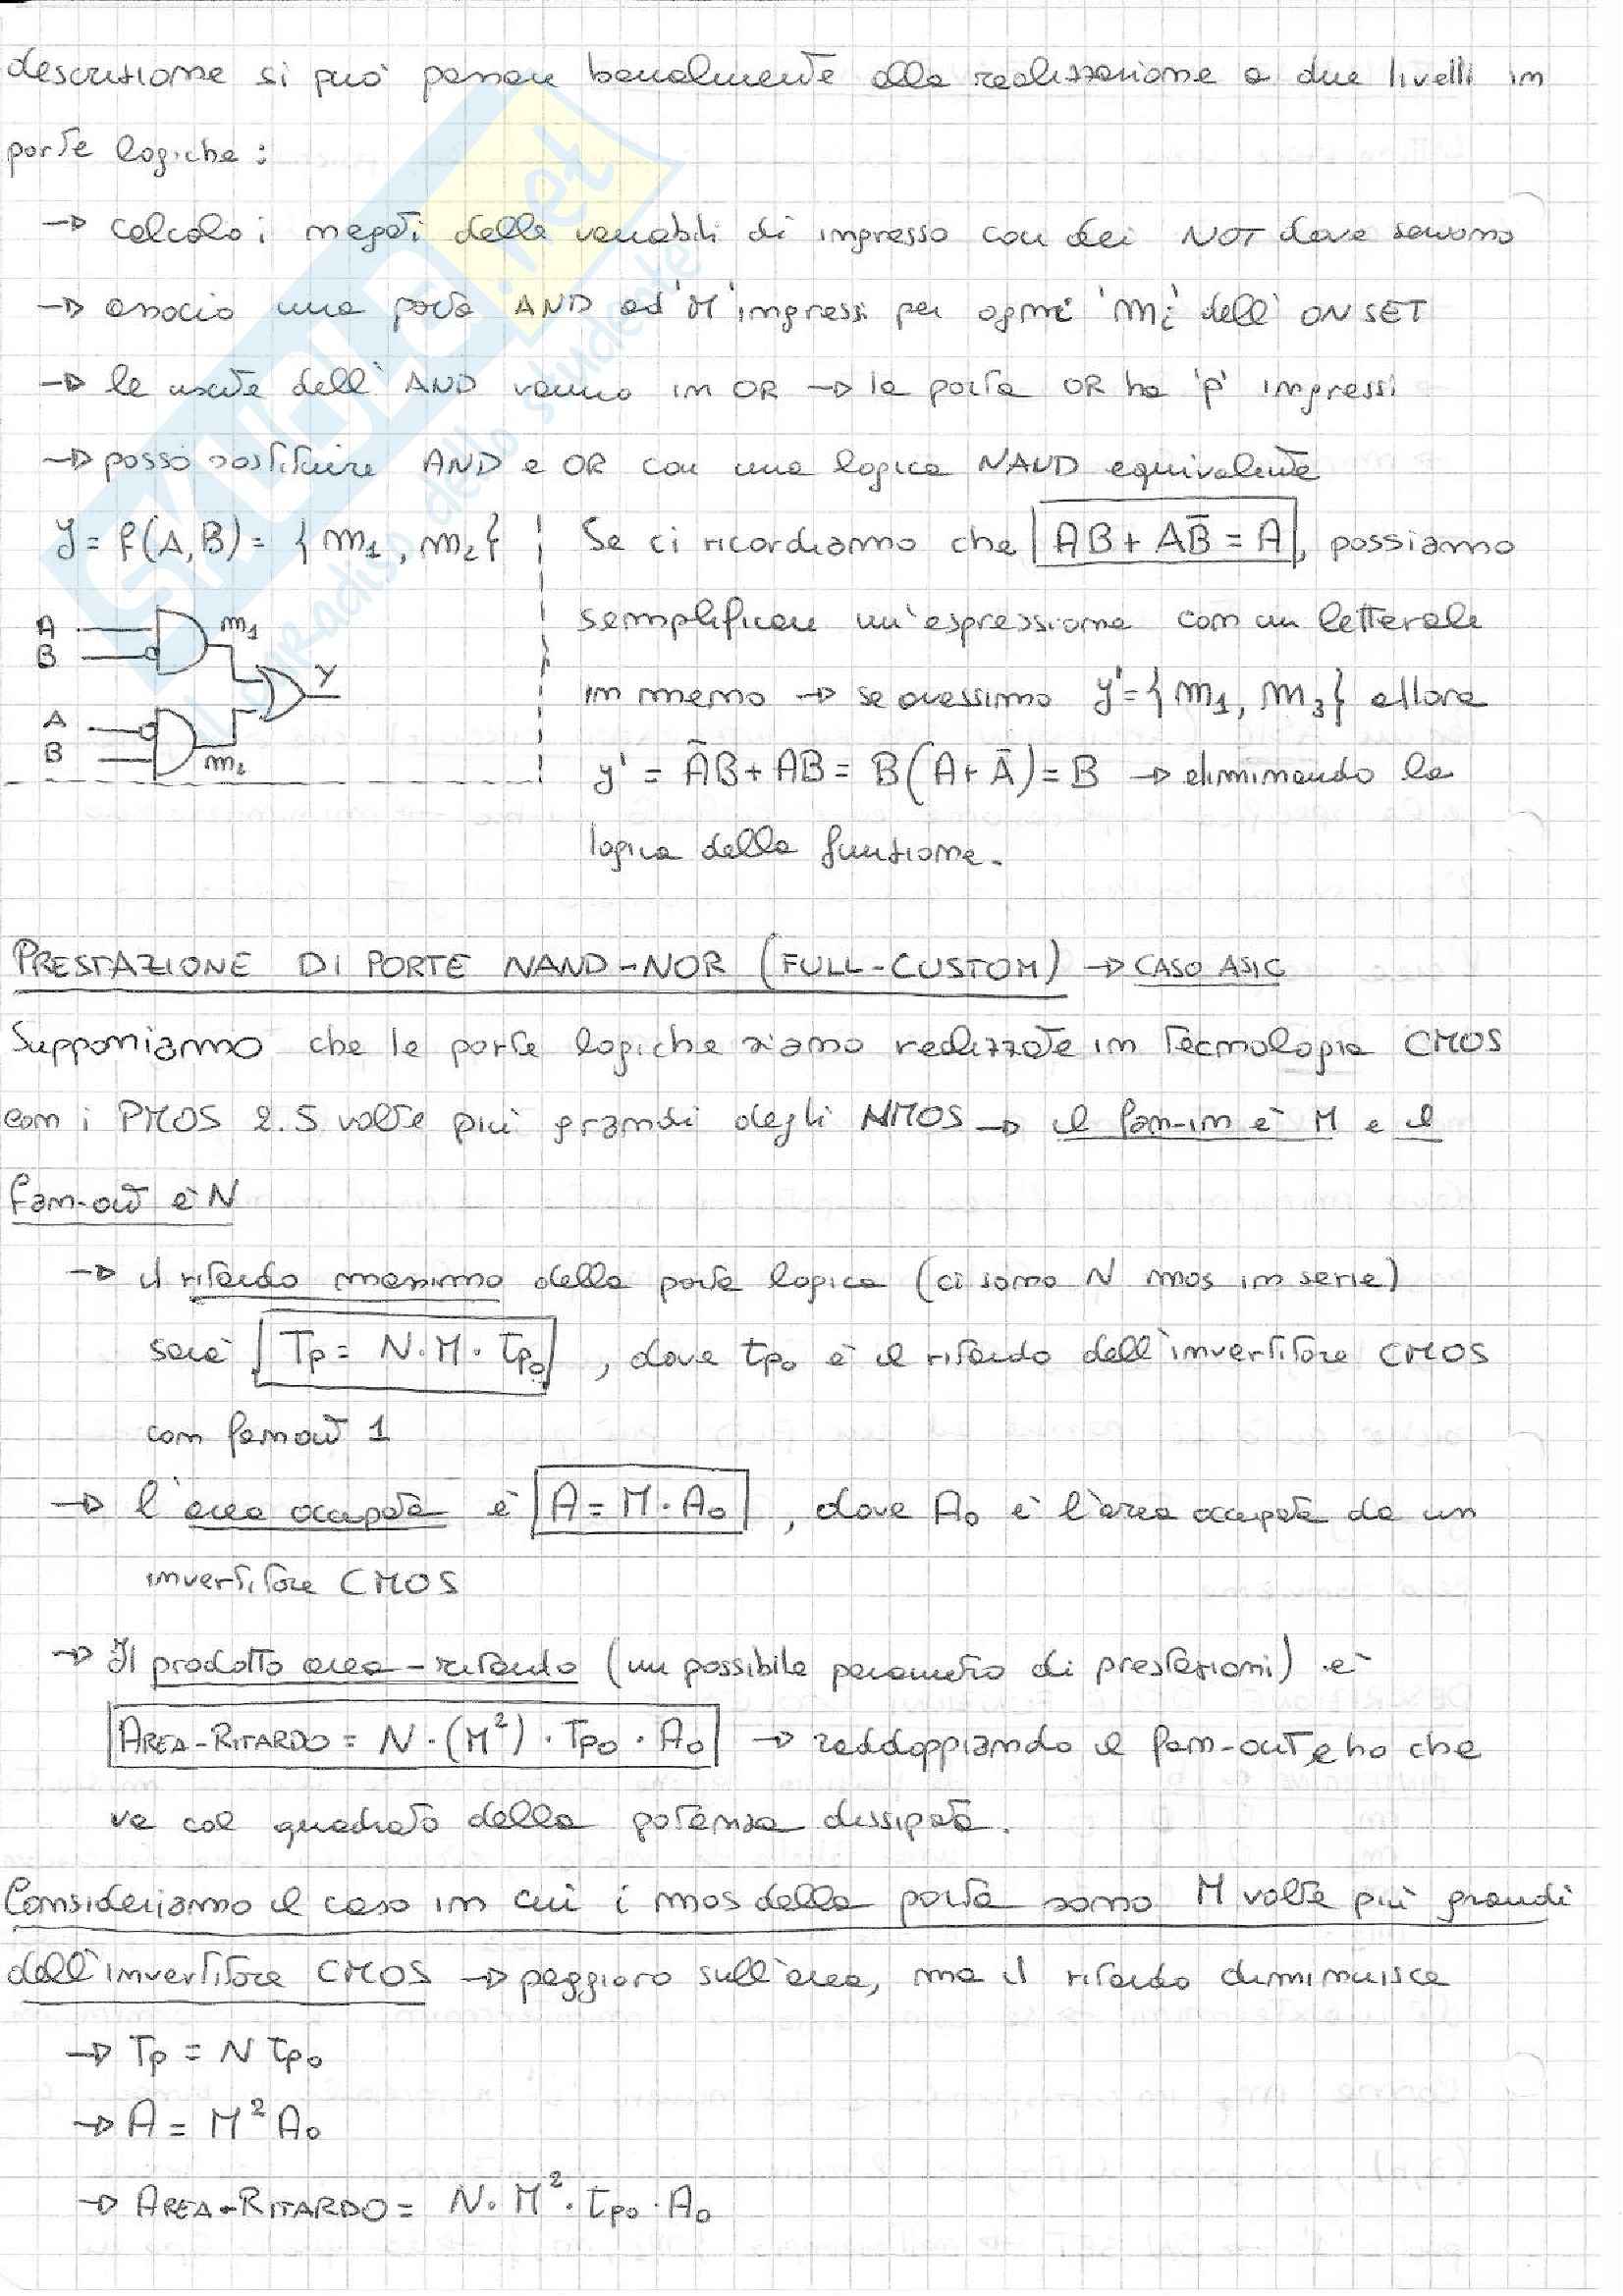 descrizione si può passare banalmente alla realizzazione a due livelli in
porte logiche :
→ calcolo i negati delle variabili di ingresso con dei NOT dove servono
→ associo una porta AND ad 'M' ingressi per ogni 'mi' dell' ONSET
→ le uscite dell' AND vanno in OR → la porta OR ha 'p' ingressi
→ posso sostituire AND e OR con una logica NAND equivalente
y = f(A,B) = { m1 , m2 }
A
B
m1
Y
A
B
m2
Se ci ricordiamo che AB + AB̅ = A, possiamo
semplificare un'espressione con un letterale
in meno → se avessimo y' = { m1, m3 } allora
y' = A̅B + AB = B(A + A̅) = B → eliminando la
logica della funzione.
PRESTAZIONE DI PORTE NAND-NOR (FULL-CUSTOM) → CASO ASIC
Supponiamo che le porte logiche siano realizzate in tecnologia CMOS
con i PMOS 2.5 volte più grandi degli NMOS → il fan-in è M e il
fan-out è N
→ il ritardo massimo della porta logica (ci sono N mos in serie)
sarà Tp = N · M · tp0 , dove tp0 è il ritardo dell'invertitore CMOS
con fanout 1
→ l'area occupata è A = M · A0 , dove A0 è l'area occupata da un
invertitore CMOS
→ Il prodotto area-ritardo (un possibile parametro di prestazioni) è
AREA-RITARDO = N · (M²) · Tp0 · A0 → raddoppiando il fan-out, ho che
va col quadrato della potenza dissipata.
Consideriamo il caso in cui i mos della porta sono M volte più grandi
dell'invertitore CMOS → peggioro sull'area, ma il ritardo diminuisce
→ Tp = N tp0
→ A = M² A0
→ AREA-RITARDO = N · M² · tp0 · A0